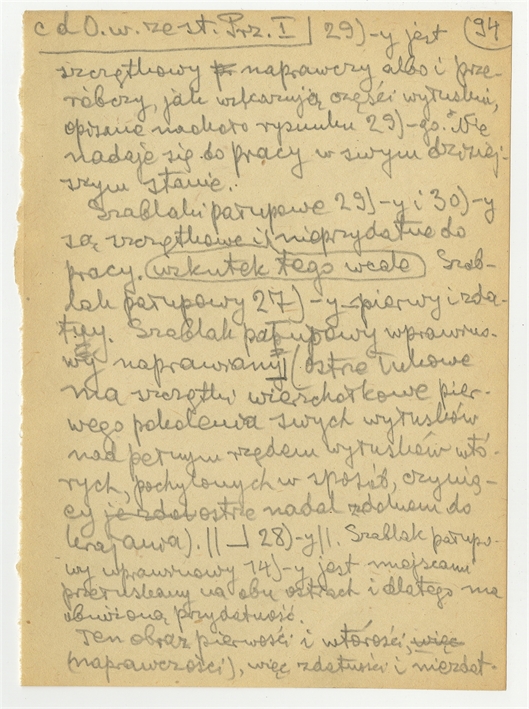 c d O. w. zest. Prz. I | 29)-y jest (94
szczętkowy naprawczy albo i prze-
róbczy, jak wskazują części wyłuskni,
opisane naokoło rysunku 29)-go. Nie
nadaje się do pracy w swym dzisiej-
szym stanie.
Szablaki pałupowe 29)-y i 30)-y
są szczętkowe i nieprzydatne do
pracy. wskutek tego wcale Szab-
lak pałupowy 27)-y pierwy i zda-
tny. Szablak pałupowy wprawno-
wy naprawiany (ostrze łukowe
ma szczętki wierzchołkowe pier-
wego pokolenia swych wyłusków
nad pełnym rzędem wyłusków wtó-
rych, pochylonych w sposób, czynią-
cy je zdol ostrze nadal zdolnem do
krajania). || 28)-y ||. Szablak pałupo-
wy wprawnowy 14)-y jest miejscami
przetruskany na obu ostrzach i dlatego ma
obniżoną przydatność.
Ten obraz pierwości i wtórości, więc
(naprawczości), więc zdatności i niezdat-